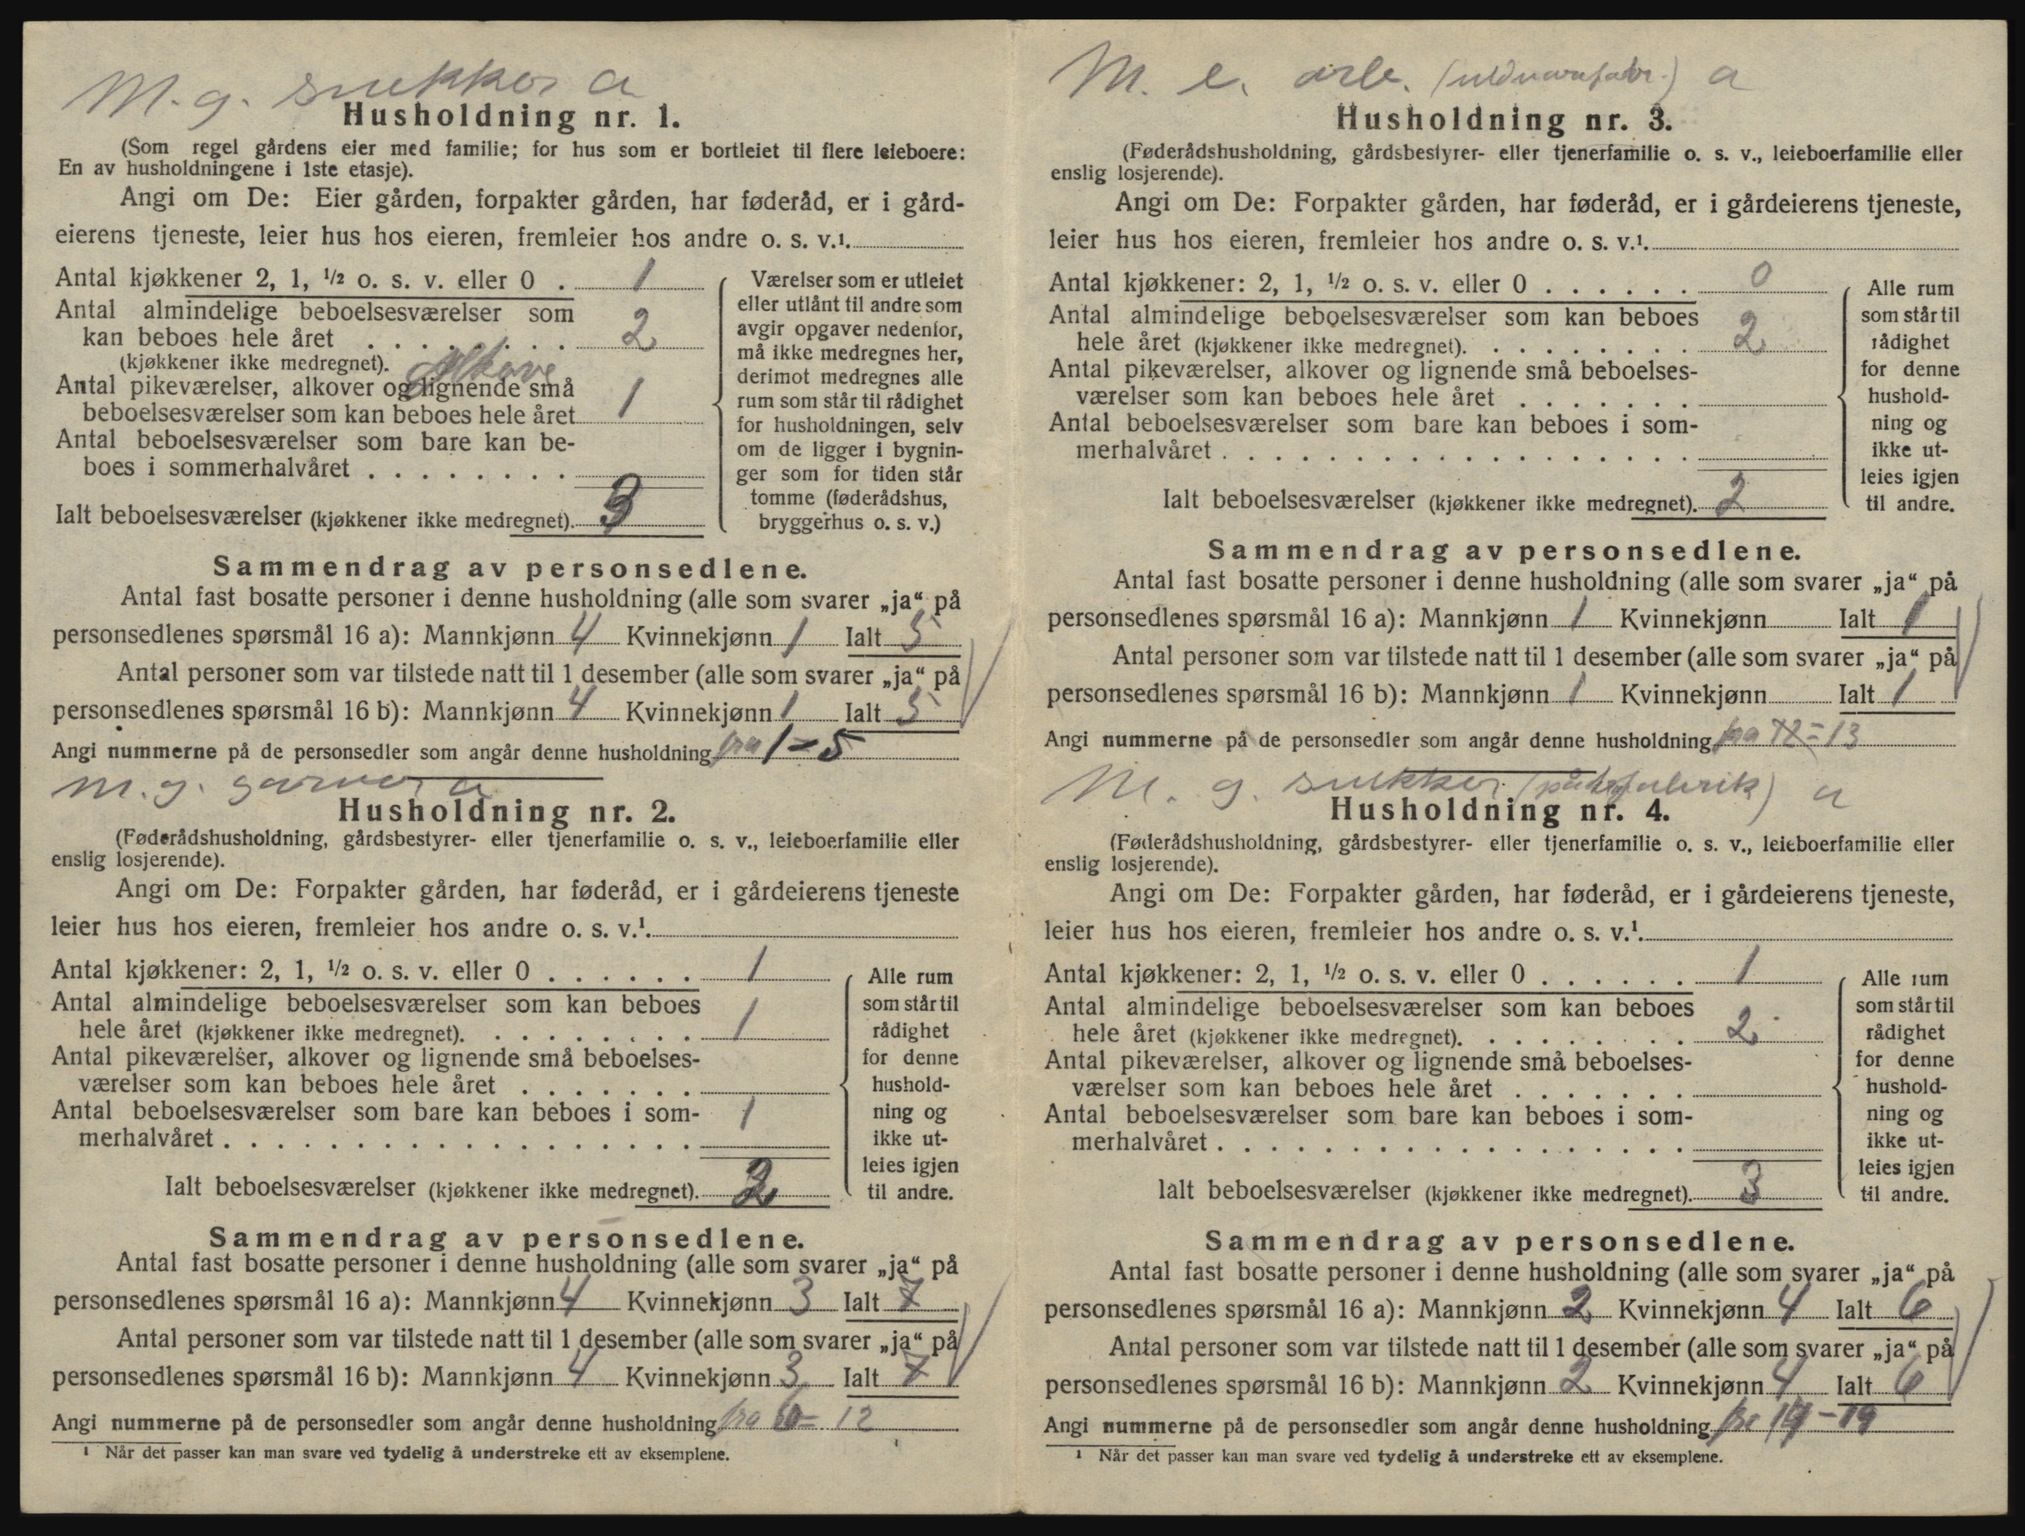 M. g. snekker a
Husholdning nr. 1.
(Som regel gårdens eier med familie; for hus som er bortleiet til flere leieboere:
En av husholdningene i 1ste etasje).
Angi om De: Eier gården, forpakter gården, har føderåd, er i gård-
eierens tjeneste, leier hus hos eieren, fremleier hos andre o. s. v.¹.
Antal kjøkkener 2, 1, ½ o. s. v. eller 0 . 1
Antal almindelige beboelsesværelser som
kan beboes hele året . . . . . . . . 2
(kjøkkener ikke medregnet). Alkove
Antal pikeværelser, alkover og lignende små
beboelsesværelser som kan beboes hele året 1
Antal beboelsesværelser som bare kan be-
boes i sommerhalvåret . . . . . . . .
Ialt beboelsesværelser (kjøkkener ikke medregnet). 3
Værelser som er utleiet
eller utlånt til andre som
avgir opgaver nedenfor,
må ikke medregnes her,
derimot medregnes alle
rum som står til rådighet
for husholdningen, selv
om de ligger i bygnin-
ger som for tiden står
tomme (føderådshus,
bryggerhus o. s. v.)
Sammendrag av personsedlene.
Antal fast bosatte personer i denne husholdning (alle som svarer „ja“ på
personsedlenes spørsmål 16 a): Mannkjønn 4 Kvinnekjønn 1 Ialt 5
Antal personer som var tilstede natt til 1 desember (alle som svarer „ja“ på
personsedlenes spørsmål 16 b): Mannkjønn 4 Kvinnekjønn 1 Ialt 5
Angi nummerne på de personsedler som angår denne husholdning fra 1 – 5
M. g. garver a
Husholdning nr. 2.
(Føderådshusholdning, gårdsbestyrer- eller tjenerfamilie o. s. v., leieboerfamilie eller
enslig losjerende).
Angi om De: Forpakter gården, har føderåd, er i gårdeierens tjeneste
leier hus hos eieren, fremleier hos andre o. s. v.¹.
Antal kjøkkener: 2, 1, ½ o. s. v. eller 0 . . . . . . 1
Antal almindelige beboelsesværelser som kan beboes
hele året (kjøkkener ikke medregnet). . . . . . . . . 1
Antal pikeværelser, alkover og lignende små beboelses-
værelser som kan beboes hele året . . . . . . .
Antal beboelsesværelser som bare kan beboes i som- 1
merhalvåret . . . . . . . . . . . . . . . . . .
Ialt beboelsesværelser (kjøkkener ikke medregnet). 2
Alle rum
som står til
rådighet
for denne
hushold-
ning og
ikke ut-
leies igjen
til andre.
Sammendrag av personsedlene.
Antal fast bosatte personer i denne husholdning (alle som svarer „ja“ på
personsedlenes spørsmål 16 a): Mannkjønn 4 Kvinnekjønn 3 Ialt 7
Antal personer som var tilstede natt til 1 desember (alle som svarer „ja“ på
personsedlenes spørsmål 16 b): Mannkjønn 4 Kvinnekjønn 3 Ialt 7
Angi nummerne på de personsedler som angår denne husholdning fra 6 – 12
¹ Når det passer kan man svare ved tydelig å understreke ett av eksemplene.
M. e. arb. a
Husholdning nr. 3.
(Føderådshusholdning, gårdsbestyrer- eller tjenerfamilie o. s. v., leieboerfamilie eller
enslig losjerende).
Angi om De: Forpakter gården, har føderåd, er i gårdeierens tjeneste,
leier hus hos eieren, fremleier hos andre o. s. v.¹.
Antal kjøkkener: 2, 1, ½ o. s. v. eller 0 . . . . . . 0
Antal almindelige beboelsesværelser som kan beboes
hele året (kjøkkener ikke medregnet). . . . . . . . . 2
Antal pikeværelser, alkover og lignende små beboelses-
værelser som kan beboes hele året . . . . . . .
Antal beboelsesværelser som bare kan beboes i som-
merhalvåret . . . . . . . . . . . . . . . . . .
Ialt beboelsesværelser (kjøkkener ikke medregnet). 2
Alle rum
som står til
rådighet
for denne
hushold-
ning og
ikke ut-
leies igjen
til andre.
Sammendrag av personsedlene.
Antal fast bosatte personer i denne husholdning (alle som svarer „ja“ på
personsedlenes spørsmål 16 a): Mannkjønn 1 Kvinnekjønn Ialt 1
Antal personer som var tilstede natt til 1 desember (alle som svarer „ja“ på
personsedlenes spørsmål 16 b): Mannkjønn 1 Kvinnekjønn Ialt 1
Angi nummerne på de personsedler som angår denne husholdning fra 12 – 13
M. g. snekker a
Husholdning nr. 4.
(Føderådshusholdning, gårdsbestyrer- eller tjenerfamilie o. s. v., leieboerfamilie eller
enslig losjerende).
Angi om De: Forpakter gården, har føderåd, er i gårdeierens tjeneste,
leier hus hos eieren, fremleier hos andre o. s. v.¹.
Antal kjøkkener: 2, 1, ½ o. s. v. eller 0 . . . . . . 1
Antal almindelige beboelsesværelser som kan beboes
hele året (kjøkkener ikke medregnet). . . . . . . . . 2
Antal pikeværelser, alkover og lignende små beboelses-
værelser som kan beboes hele året . . . . . . .
Antal beboelsesværelser som bare kan beboes i som-
merhalvåret . . . . . . . . . . . . . . . . . .
Ialt beboelsesværelser (kjøkkener ikke medregnet). 3
Alle rum
som står til
rådighet
for denne
hushold-
ning og
ikke ut-
leies igjen
til andre.
Sammendrag av personsedlene.
Antal fast bosatte personer i denne husholdning (alle som svarer „ja“ på
personsedlenes spørsmål 16 a): Mannkjønn 2 Kvinnekjønn 4 Ialt 6
Antal personer som var tilstede natt til 1 desember (alle som svarer „ja“ på
personsedlenes spørsmål 16 b): Mannkjønn 2 Kvinnekjønn 4 Ialt 6
Angi nummerne på de personsedler som angår denne husholdning fra 14 – 19
¹ Når det passer kan man svare ved tydelig å understreke ett av eksemplene.